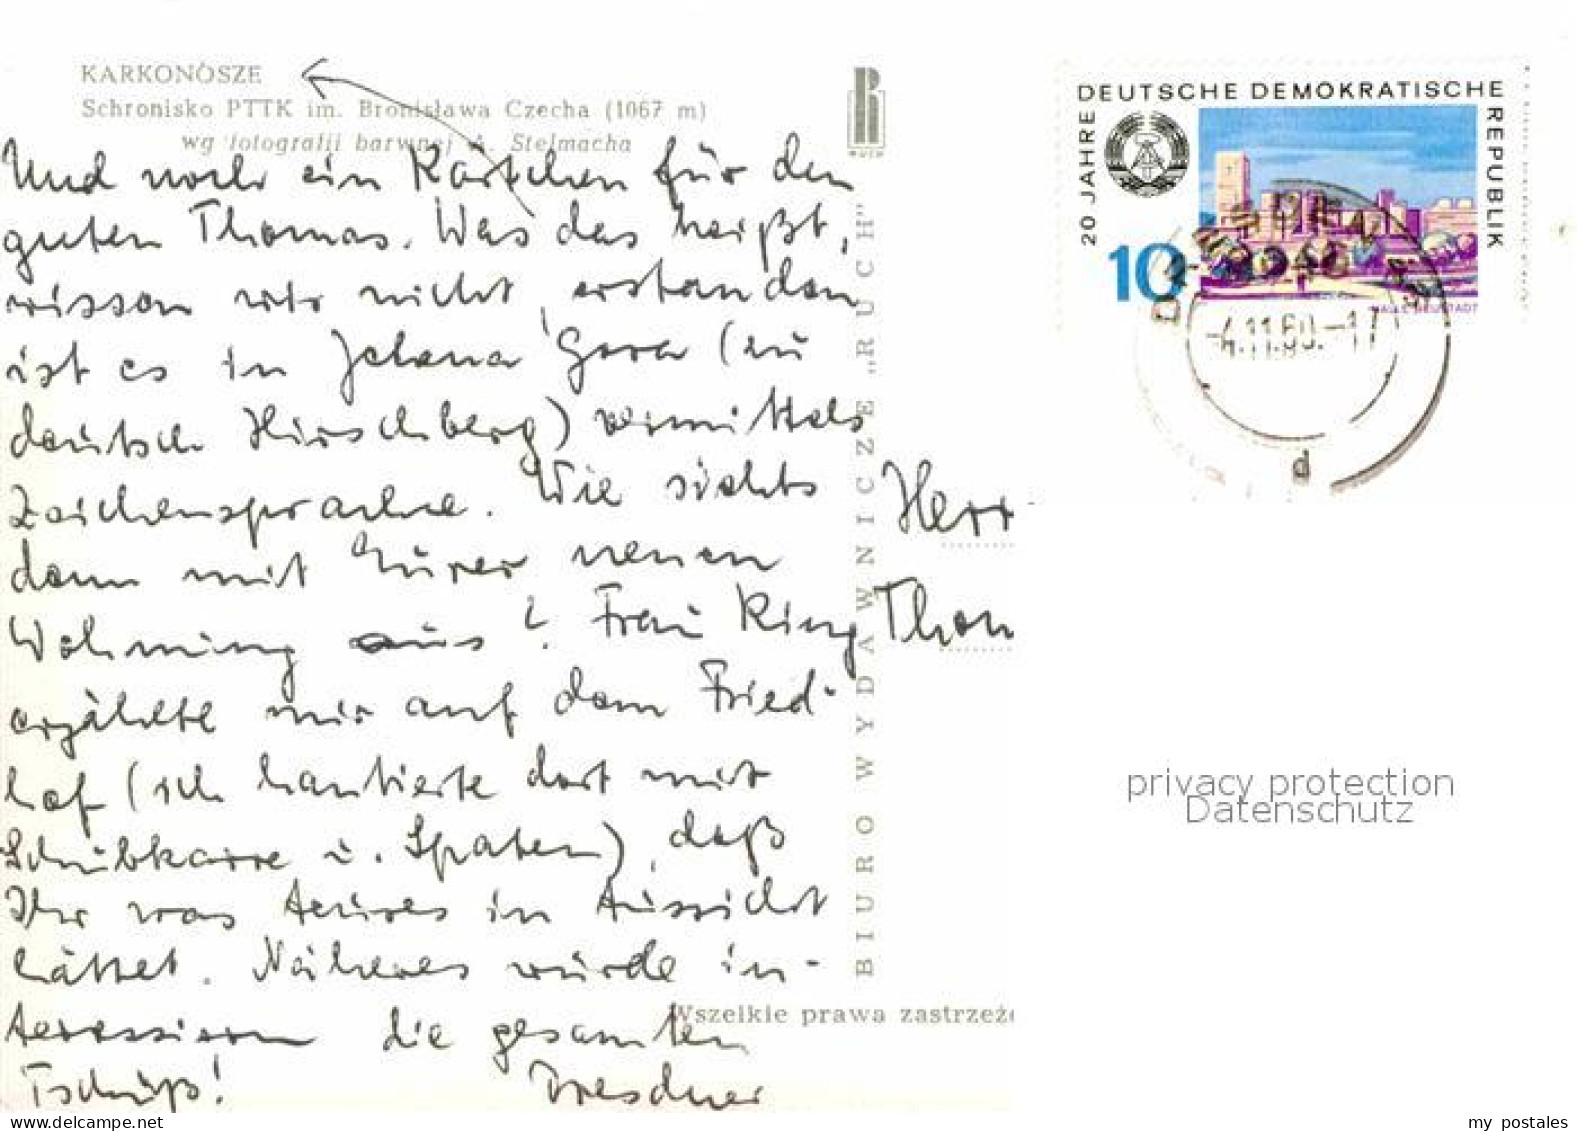 KARKONOSZE
Schronisko PTTK im. Bronisława Czecha (1067 m)
wg fotografii barwnej A. Stelmacha
RUCH
Und noch ein Kärtchen für den
guten Thomas. Was das heißt,
wissen wir nicht, erstanden
ist es in Jelena Gora (zu
deutsch Hirschberg) vermittels
Zeichensprache. Wie siehts
denn mit Eurer neuen
Wohnung aus? Frau Ring
erzählte mir auf dem Fried-
hof (ich hantierte dort mit
Schubkarre u. Spaten), daß
Ihr was teures in Aussicht
hättet. Näheres würde in-
teressieren die gesamten
Tschüß! Dresdner
BIURO WYDAWNICZE „RUCH"
Wszelkie prawa zastrzeż
Herr
Thom
20 JAHRE DEUTSCHE DEMOKRATISCHE REPUBLIK
10
HALLE-NEUSTADT
d
privacy protection
Datenschutz
www.delcampe.net
my_postales